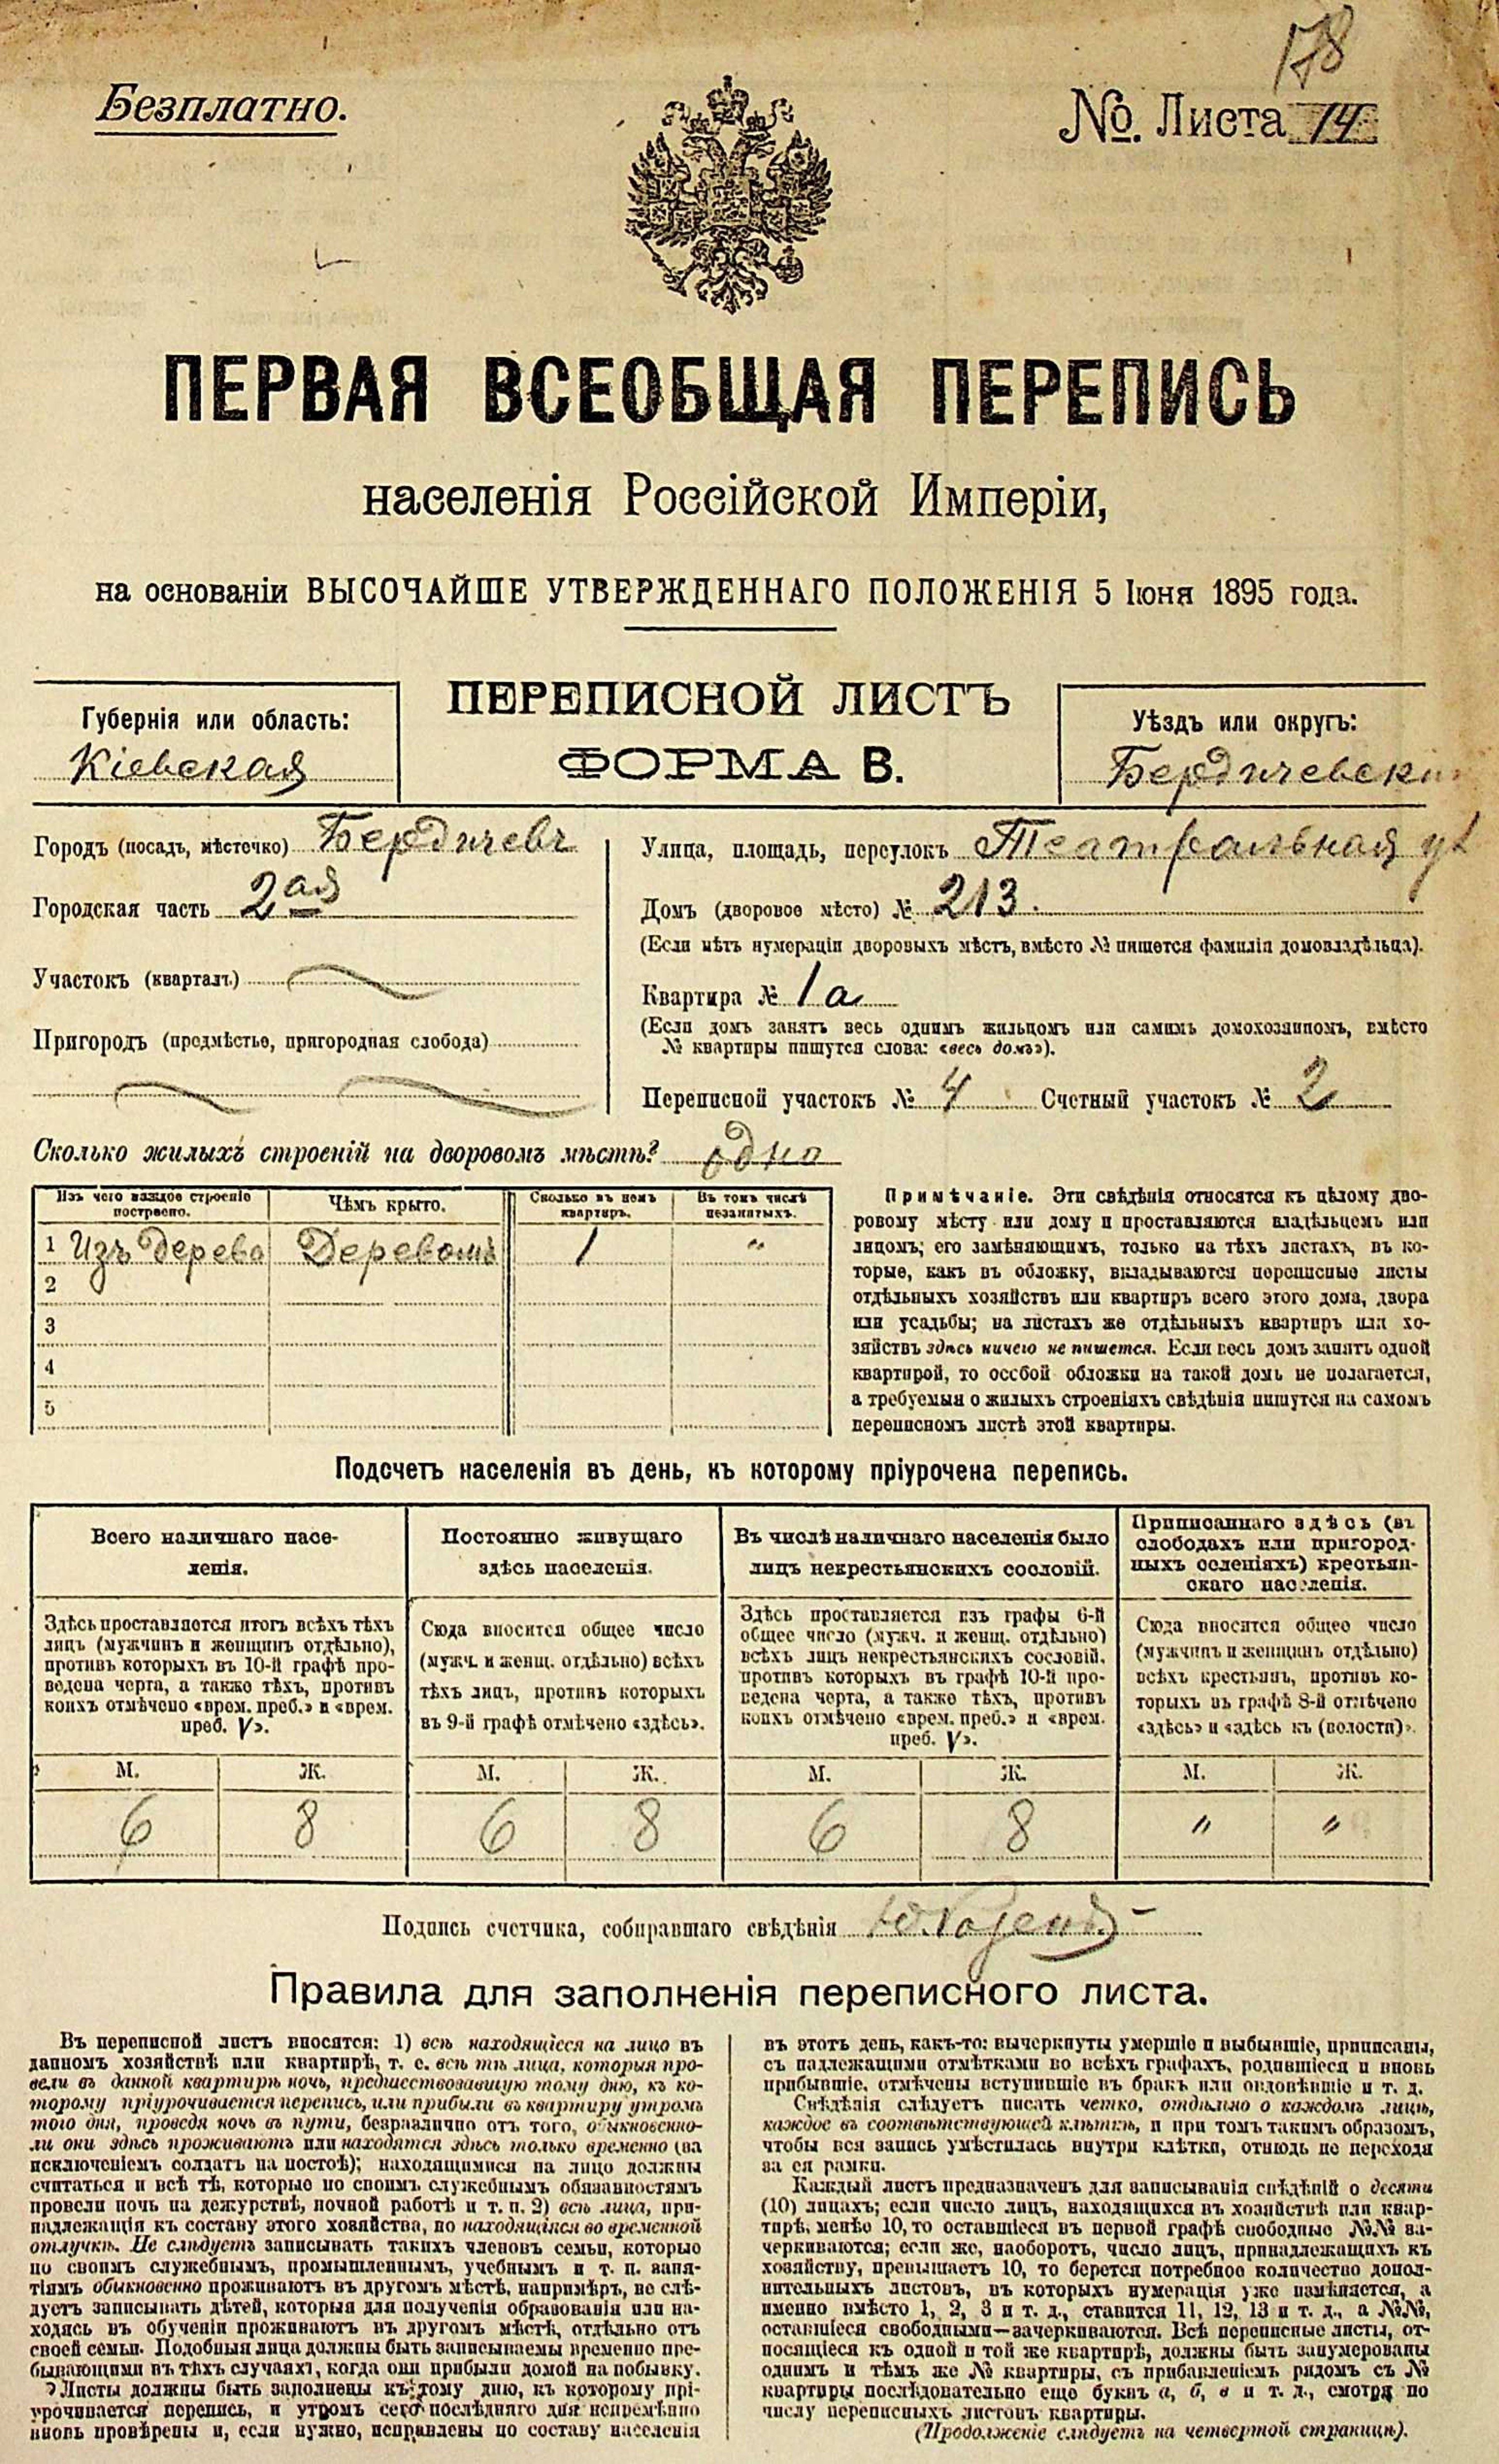 178
Безплатно.
№. Листа 14
ПЕРВАЯ ВСЕОБЩАЯ ПЕРЕПИСЬ
населенія Россійской Имперіи,
на основаніи ВЫСОЧАЙШЕ УТВЕРЖДЕННАГО ПОЛОЖЕНІЯ 5 Іюня 1895 года.
ПЕРЕПИСНОЙ ЛИСТЪ
ФОРМА В.
Губернія или область:
Кіевская
Уѣздъ или округъ:
Бердичевскій
Городъ (посадъ, мѣстечко) Бердичевъ
Городская часть 2ая
Участокъ (кварталъ)
Пригородъ (предмѣстье, пригородная слобода)
Улица, площадь, переулокъ Театральная ул
Домъ (дворовое мѣсто) № 213.
(Если нѣтъ нумераціи дворовыхъ мѣстъ, вмѣсто № пишется фамилія домовладѣльца).
Квартира № 1а
(Если домъ занятъ весь однимъ жильцомъ или самимъ домохозяиномъ, вмѣсто
№ квартиры пишутся слова: «весь домъ»).
Переписной участокъ № 4 Счетный участокъ № 2
Сколько жилыхъ строеній на дворовомъ мѣстѣ? одно
Изъ чего каждое строеніе построено. Чѣмъ крыто. Сколько въ немъ квартиръ. Въ томъ числѣ незанятыхъ.
1 Изъ дерева Деревомъ 1 "
2
3
4
5
Примѣчаніе. Эти свѣдѣнія относятся къ цѣлому дво-
ровому мѣсту или дому и проставляются владѣльцемъ или
лицомъ, его замѣняющимъ, только на тѣхъ листахъ, въ ко-
торые, какъ въ обложку, вкладываются переписные листы
отдѣльныхъ хозяйствъ или квартиръ всего этого дома, двора
или усадьбы; на листахъ же отдѣльныхъ квартиръ или хо-
зяйствъ здѣсь ничего не пишется. Если весь домъ занятъ одной
квартирой, то особой обложки на такой домъ не полагается,
а требуемыя о жилыхъ строеніяхъ свѣдѣнія пишутся на самомъ
переписномъ листѣ этой квартиры.
Подсчетъ населенія въ день, къ которому пріурочена перепись.
Всего наличнаго насе-
ленія.
Здѣсь проставляется итогъ всѣхъ тѣхъ
лицъ (мужчинъ и женщинъ отдѣльно),
противъ которыхъ въ 10-й графѣ про-
ведена черта, а также тѣхъ, противъ
коихъ отмѣчено «врем. преб.» и «врем.
преб. V».
Постоянно живущаго
здѣсь населенія.
Сюда вносится общее число
(мужч. и женщ. отдѣльно) всѣхъ
тѣхъ лицъ, противъ которыхъ
въ 9-й графѣ отмѣчено «здѣсь».
Въ числѣ наличнаго населенія было
лицъ некрестьянскихъ сословій.
Здѣсь проставляется изъ графы 6-й
общее число (мужч. и женщ. отдѣльно)
всѣхъ лицъ некрестьянскихъ сословій,
противъ которыхъ въ графѣ 10-й про-
ведена черта, а также тѣхъ, противъ
коихъ отмѣчено «врем. преб.» и «врем.
преб. V».
Приписаннаго здѣсь (въ
слободахъ или пригород-
ныхъ селеніяхъ) крестьян-
скаго населенія.
Сюда вносится общее число
(мужчинъ и женщинъ отдѣльно)
всѣхъ крестьянъ, противъ ко-
торыхъ въ графѣ 8-й отмѣчено
«здѣсь» и «здѣсь къ (волости)».
М. Ж. М. Ж. М. Ж. М. Ж.
6 8 6 8 6 8 " "
Подпись счетчика, собиравшаго свѣдѣнія
Правила для заполненія переписного листа.
Въ переписной листъ вносятся: 1) всѣ находящіеся на лицо въ
данномъ хозяйствѣ или квартирѣ, т. е. всѣ тѣ лица, которыя про-
вели въ данной квартирѣ ночь, предшествовавшую тому дню, къ ко-
торому пріурочивается перепись, или прибыли въ квартиру утромъ
того дня, проведя ночь въ пути, безразлично отъ того, обыкновенно-
ли они здѣсь проживаютъ или находятся здѣсь только временно (за
исключеніемъ солдатъ на постоѣ); находящимися на лицо должны
считаться и всѣ тѣ, которые по своимъ служебнымъ обязанностямъ
провели ночь на дежурствѣ, ночной работѣ и т. п. 2) всѣ лица, при-
надлежащія къ составу этого хозяйства, но находящіяся во временной
отлучкѣ. Не слѣдуетъ записывать такихъ членовъ семьи, которые
по своимъ служебнымъ, промышленнымъ, учебнымъ и т. п. заня-
тіямъ обыкновенно проживаютъ въ другомъ мѣстѣ, напримѣръ, не слѣ-
дуетъ записывать дѣтей, которыя для полученія образованія или на-
ходясь въ обученіи проживаютъ въ другомъ мѣстѣ, отдѣльно отъ
своей семьи. Подобныя лица должны быть записываемы временно пре-
бывающими въ тѣхъ случаяхъ, когда они прибыли домой на побывку.
Листы должны быть заполнены къ тому дню, къ которому прі-
урочивается перепись, и утромъ сего послѣдняго дня непремѣнно
вновь провѣрены и, если нужно, исправлены по составу населенія
въ этотъ день, какъ-то: вычеркнуты умершіе и выбывшіе, приписаны,
съ надлежащими отмѣтками во всѣхъ графахъ, родившіеся и вновь
прибывшіе, отмѣчены вступившіе въ бракъ или овдовѣвшіе и т. д.
Свѣдѣнія слѣдуетъ писать четко, отдѣльно о каждомъ лицѣ,
каждое въ соотвѣтствующей клѣткѣ, и при томъ такимъ образомъ,
чтобы вся запись умѣстилась внутри клѣтки, отнюдь не переходя
за ея рамки.
Каждый листъ предназначенъ для записыванія свѣдѣній о десяти
(10) лицахъ; если число лицъ, находящихся въ хозяйствѣ или квар-
тирѣ, менѣе 10, то оставшіеся въ первой графѣ свободные №№ за-
черкиваются; если же, наоборотъ, число лицъ, принадлежащихъ къ
хозяйству, превышаетъ 10, то берется потребное количество допол-
нительныхъ листовъ, въ которыхъ нумерація уже измѣняется, а
именно вмѣсто 1, 2, 3 и т. д., ставится 11, 12, 13 и т. д., а №№,
оставшіеся свободными—зачеркиваются. Всѣ переписные листы, от-
носящіеся къ одной и той же квартирѣ, должны быть занумерованы
однимъ и тѣмъ же № квартиры, съ прибавленіемъ рядомъ съ №
квартиры послѣдовательно еще буквъ а, б, в и т. д., смотря по
числу переписныхъ листовъ квартиры.
(Продолженіе слѣдуетъ на четвертой страницѣ).